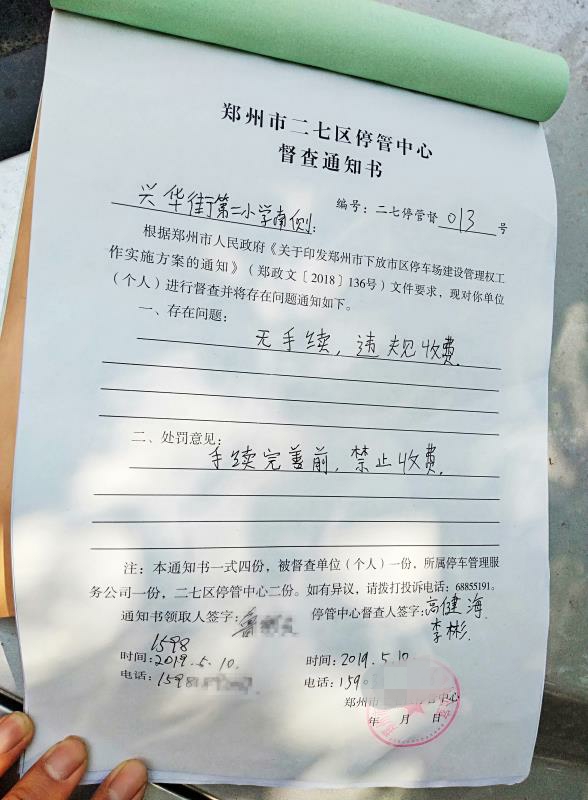 郑州市二七区停管中心
督查通知书
编号：二七停管督 013 号
兴华街第二小学南侧：
根据郑州市人民政府《关于印发郑州市下放市区停车场建设管理权工
作实施方案的通知》（郑政文〔2018〕136号）文件要求，现对你单位
（个人）进行督查并将存在问题通知如下。
一、存在问题：
无手续，违规收费.
二、处罚意见：
手续完善前，禁止收费.
注：本通知书一式四份，被督查单位（个人）一份，所属停车管理服
务公司一份，二七区停管中心二份。如有异议，请拨打投诉电话：68855191。
通知书领取人签字： 停管中心督查人签字：高健海
李彬
1598
时间：2019.5.10. 时间：2019.5.10
电话：1598 电话：159
郑州市 管中心
年 月 日